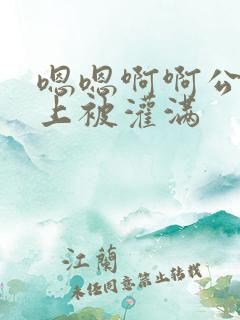 嗯嗯啊啊公
上被灌满
江蘭
未任同意禁止转载